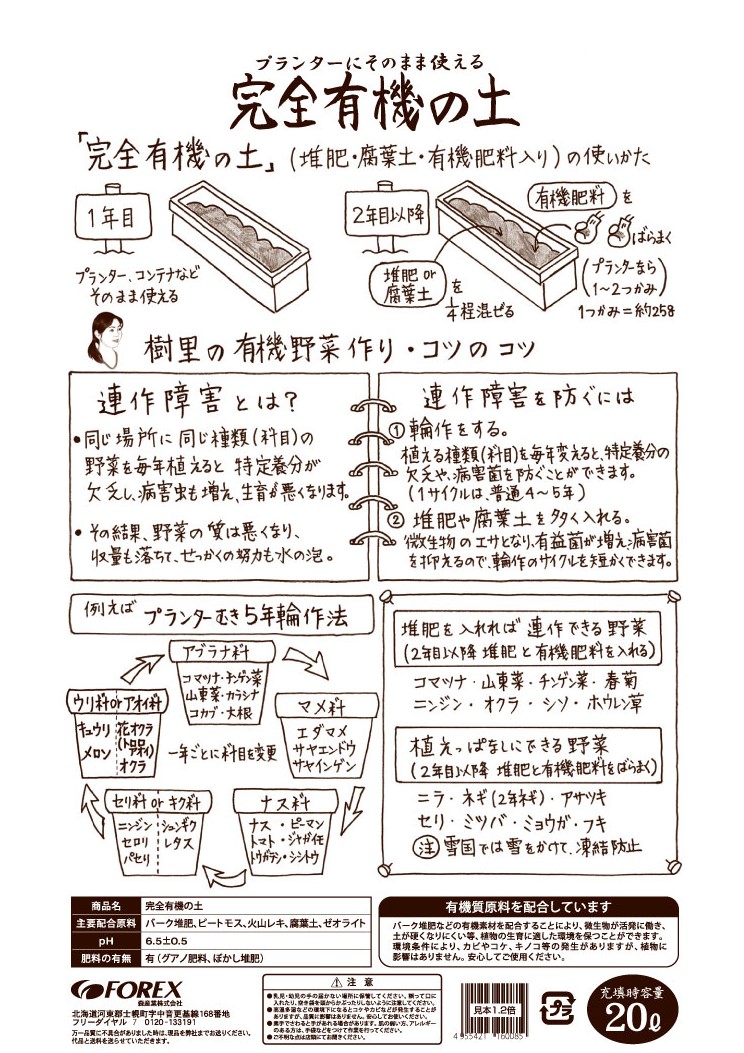 プランターにそのまま使える
完全有機の土
「完全有機の土」(堆肥・腐葉土・有機肥料入り)の使いかた
1年目
プランター、コンテナなど
そのまま使える
2年目以降
有機肥料を
ばらまく
(プランターなら
1〜2つかみ)
1つかみ=約25g
堆肥or
腐葉土を
1/4程混ぜる
樹里の有機野菜作り・コツのコツ
連作障害とは?
•同じ場所に同じ種類(科目)の
野菜を毎年植えると特定養分が
欠乏し、病害虫も増え、生育が悪くなります。
•その結果、野菜の質は悪くなり、
収量も落ちて、せっかくの努力も水の泡。
連作障害を防ぐには
①輪作をする。
植える種類(科目)を毎年変えると、特定養分の
欠乏や、病害菌を防ぐことができます。
(1サイクルは、普通4〜5年)
②堆肥や腐葉土を多く入れる。
微生物のエサとなり、有益菌が増え、病害菌
を抑えるので、輪作のサイクルを短かくできます。
例えば プランターむき5年輪作法
アブラナ科
コマツナ・チンゲン菜
山東菜・カラシナ
コカブ・大根
マメ科
エダマメ
サヤエンドウ
サヤインゲン
ナス科
ナス・ピーマン
トマト・ジャガイモ
トウガラシ・シシトウ
セリ科 or キク科
ニンジン
セロリ
パセリ
シュンギク
レタス
ウリ科orアオイ科
キュウリ
メロン
花オクラ
オクラ
一年ごとに科目を変更
堆肥を入れれば連作できる野菜
(2年目以降 堆肥と有機肥料を入れる)
コマツナ・山東菜・チンゲン菜・春菊
ニンジン・オクラ・シソ・ホウレン草
植えっぱなしにできる野菜
(2年目以降 堆肥と有機肥料をばらまく)
ニラ・ネギ(2年ネギ)・アサツキ
セリ・ミツバ・ミョウガ・フキ
注 雪国では雪をかけて、凍結防止
商品名 完全有機の土
主要配合原料 バーク堆肥、ピートモス、火山レキ、腐葉土、ゼオライト
pH 6.5±0.5
肥料の有無 有(グアノ肥料、ぼかし堆肥)
有機質原料を配合しています
バーク堆肥などの有機素材を配合することにより、微生物が活発に働き、
土が硬くなりにくい等、植物の生育に適した環境を保つことができます。
環境条件により、カビやコケ、キノコ等の発生がありますが、植物に
影響はありません。安心してご使用ください。
FOREX
森産業株式会社
北海道河東郡士幌町字中音更基線168番地
フリーダイヤル 0120-133191
万一品質に不具合がありました時は、現品を弊社までお送りください。
代品と送料を送らせていただきます。
注意
●乳児・幼児の手の届かない場所に保管してください。誤って口に
入れたり、空き袋を頭からかぶったりしないように注意してください。
●高温多湿などの環境下になるとコケやカビなどが発生することが
ありますが、品質に影響はありません。安心してご使用ください。
●素手でさわると手があれる場合があります。肌の弱い方、アレルギー
のある方は、手袋などをつけて作業を行ってください。
●ご不明な点は店頭にてお聞きください。
見本1.2倍
4 955421 160085
プラ
充填時容量
20ℓ